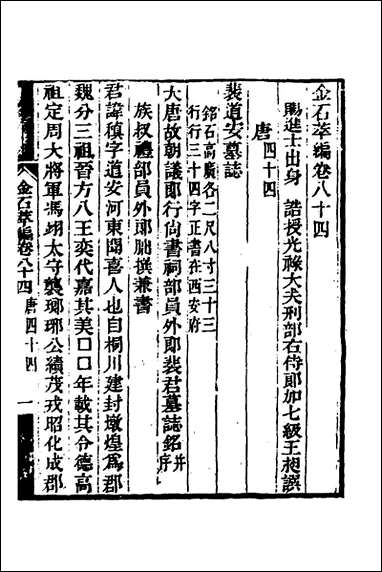 金石萃編卷八十四
賜進士出身 誥授光祿大夫刑部右侍郎加七級王昶譔
唐四十四
裴道安墓誌
銘石高廣各二尺八寸三十三
行行三十四字正書在西安府
大唐故朝議郎行尚書祠部員外郎裴君墓誌銘并序
族叔禮部員外郎朏撰兼書
君諱稹字道安河東聞喜人也自桐川建封墩煌為郡
魏分三祖晉方八王奕代嘉其美□□年載其令德高
祖定周大將軍馮翊太守襲瑯琊公續茂戎昭化成郡
金石萃編卷八十四 唐四十四 一